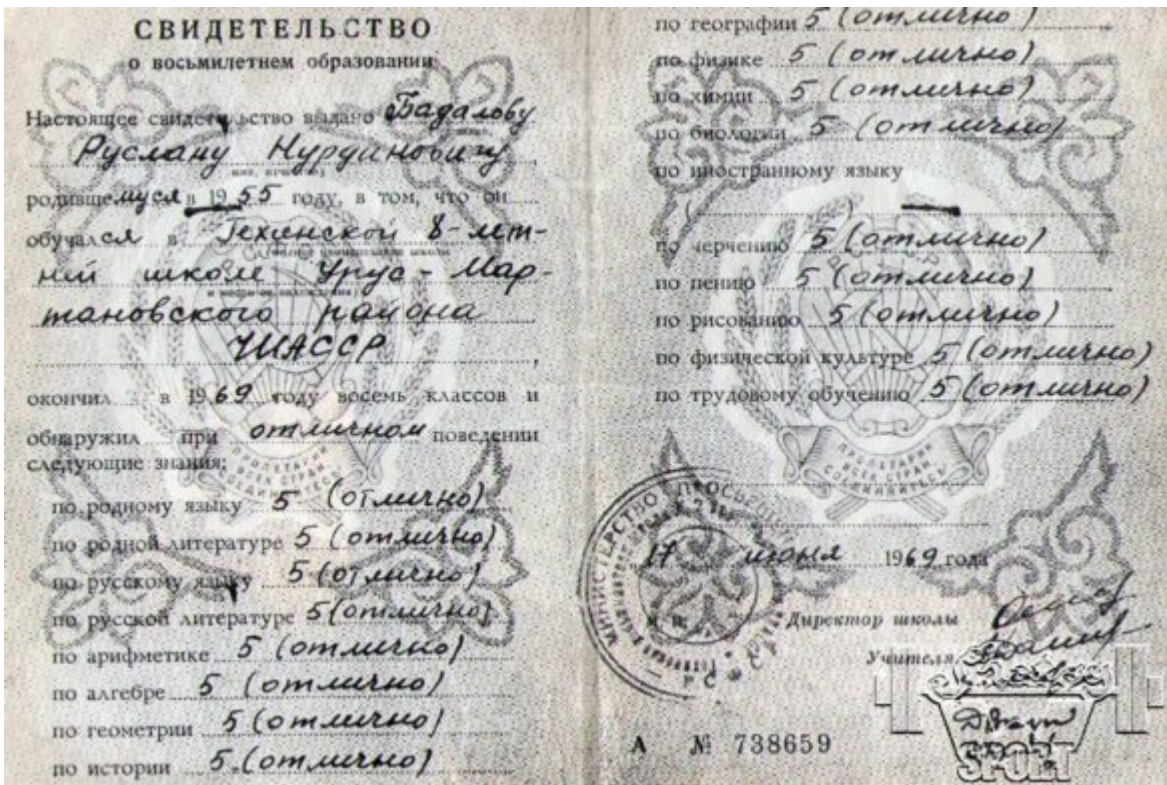 СВИДЕТЕЛЬСТВО
о восьмилетнем образовании
Настоящее свидетельство выдано Бадалову
Руслану Нурдиновичу,
родившемуся в 1955 году, в том, что он
обучался в Гехинской 8-лет-
ней школе Урус-Мар-
тановского района
ЧИАССР,
окончил в 1969 году восемь классов и
обнаружил при отличном поведении
следующие знания:
по родному языку 5 (отлично)
по родной литературе 5 (отлично)
по русскому языку 5 (отлично)
по русской литературе 5 (отлично)
по арифметике 5 (отлично)
по алгебре 5 (отлично)
по геометрии 5 (отлично)
по истории 5 (отлично)
по географии 5 (отлично)
по физике 5 (отлично)
по химии 5 (отлично)
по биологии 5 (отлично)
по иностранному языку
( ) —
по черчению 5 (отлично)
по пению 5 (отлично)
по рисованию 5 (отлично)
по физической культуре 5 (отлично)
по трудовому обучению 5 (отлично)
ПРОЛЕТАРИИ
ВСЕХ СТРАН
СОЕДИНЯЙТЕСЬ
МИНИСТЕРСТВО ПРОСВЕЩЕНИЯ
РСФСР
17 июня 1969 года
Директор школы
Учителя
А № 738659
SPORT